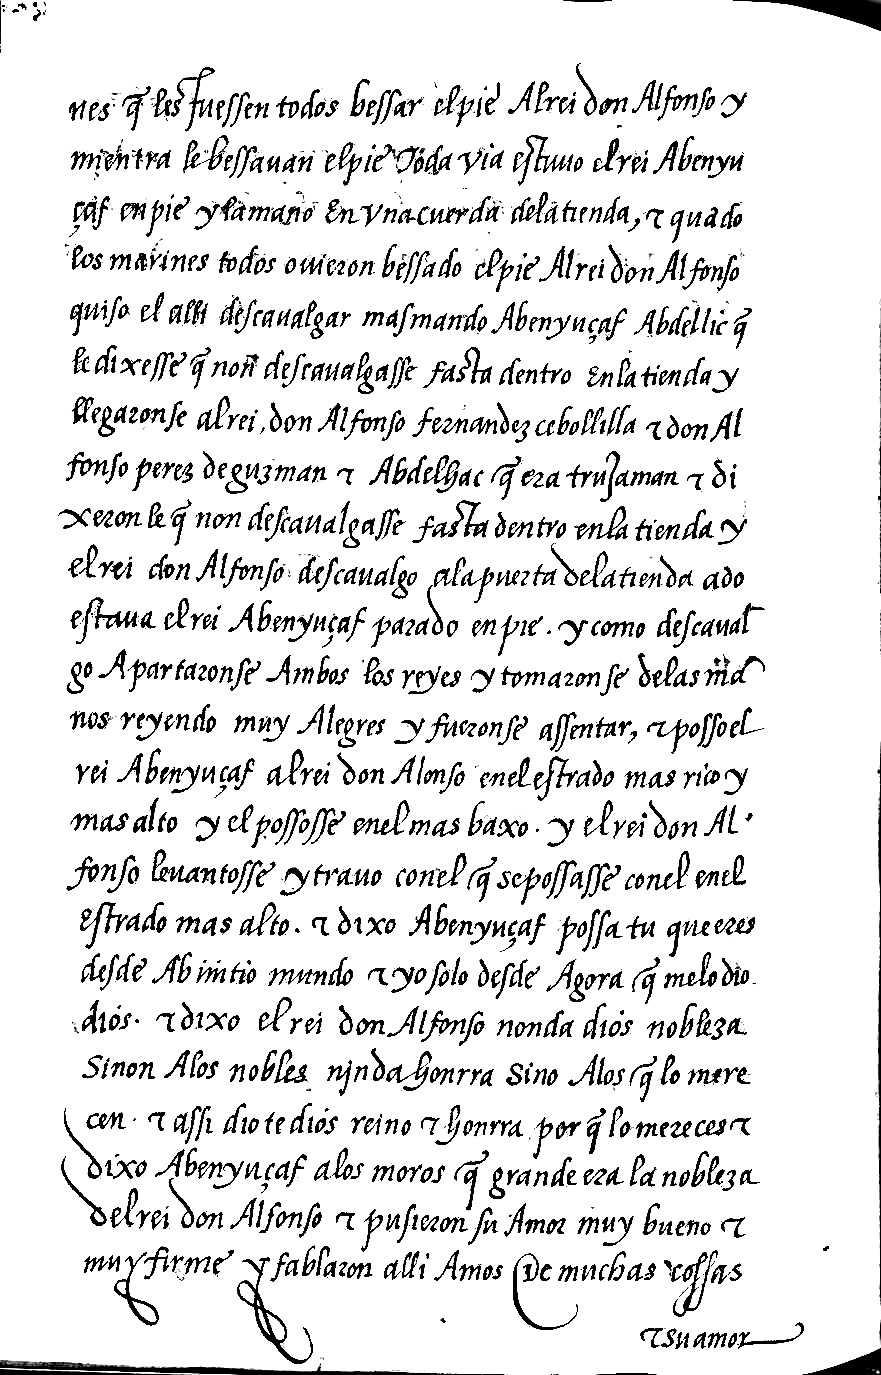 nes q̃ les fuessen todos bessar el pie Al rei don Alfonso y
mientra le bessauan el pie Toda via estuuo el rei Abenyu
çaf en pie y la mano En vna cuerda de la tienda, τ quãdo
los marines todos ouieron bessado el pie Al rei don Alfonso
quiso el alli descaualgar mas mando Abenyuçaf Abdellic q̃
le dixesse q̃ non descaualgasse fasta dentro En la tienda y
llegaronse al rei don Alfonso fernandez cebollilla τ don Al
fonso perez de guzman τ Abdelhac q̃ era trujaman τ di
xeron le q̃ non descaualgasse fasta dentro en la tienda y
el rei don Alfonso descaualgo a la puerta de la tienda ado
estaua el rei Abenyuçaf parado en pie. y como descaual
go Apartaronse Ambos los reyes y tomaronse de las ma
nos reyendo muy Alegres y fueronse assentar, τ posso el
rei Abenyuçaf al rei don Alonso en el estrado mas rico y
mas alto y el possosse en el mas baxo. y el rei don Al
fonso leuantosse y trauo con el q̃ se possasse con el en el
Estrado mas alto. τ dixo Abenyuçaf possa tu que eres
desde Ab initio mundo τ yo solo desde Agora q̃ me lo dio
dios. τ dixo el rei don Alfonso non da dios nobleza
Sinon Alos nobles nin da honrra Sino Alos q̃ lo mere
cen. τ assi dio te dios reino τ honrra por q̃ lo mereces τ
dixo Abenyuçaf a los moros q̃ grande era la nobleza
del rei don Alfonso τ pusieron su Amor muy bueno τ
muy firme y fablaron alli Amos De muchas cossas
τ su amor